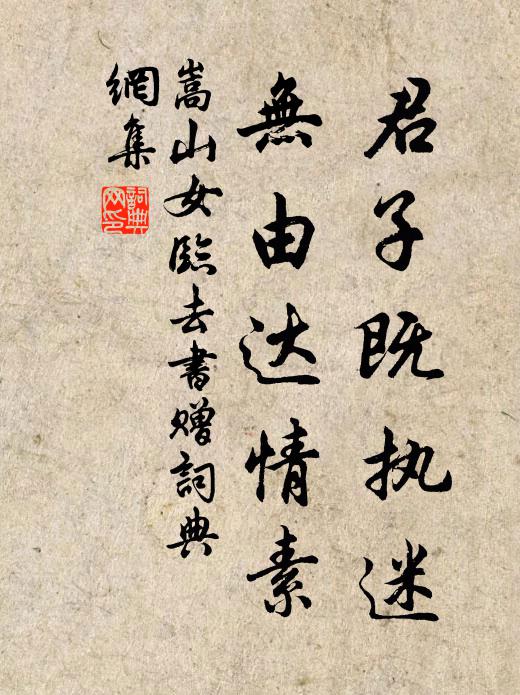 君子既执迷
無由达情素
嵩山女臨去書赠詞典
網集
詞典网印